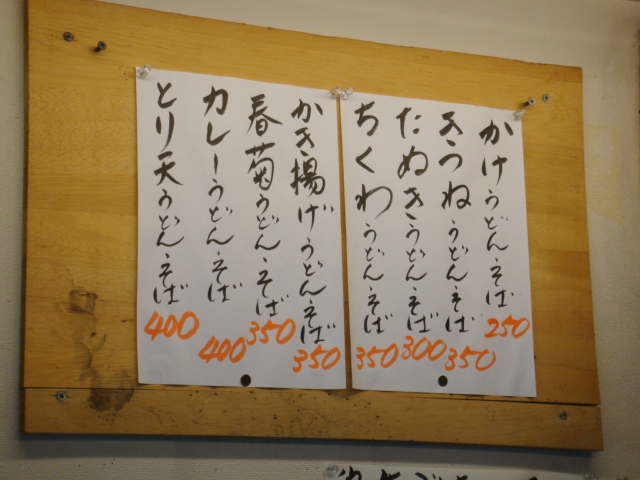 かけうどん.そば 250
きつねうどん.そば 350
たぬきうどん.そば 300
ちくわうどん.そば 350
かき揚げうどん.そば 350
春菊うどん.そば 350
カレーうどん.そば 400
とり天うどん.そば 400